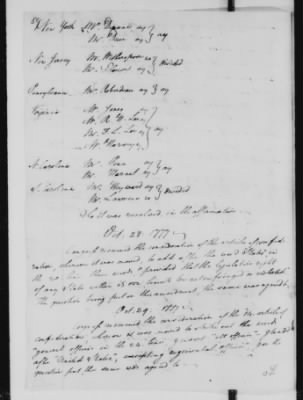 New York Mr. Duane ay
Mr. Duer ay } ay
New Jersey Mr. Witherspoon no
Mr. Elmer ay } divided
Pennsylvania Mr. Roberdeau ay } ay
Virginia Mr. Jones ay
Mr. R. H. Lee
Mr. F. L. Lee ay } ay
Mr. Harvie
N. Carolina Mr. Penn ay
Mr. Harnet ay } ay
S. Carolina Mr. Heyward ay
Mr. Laurens no } divided
So it was resolved in the affirmative
Oct. 28. 1777.
Congress resumed the consideration of the articles of confed
eration, whereon it was moved, to add after the word States in
the line these words "provided that the legislative right
of any State within its own limits be not infringed or violated"
the question being put on the amendment the same was agreed to
Oct. 29. 1777.
Congress resumed the consideration of the articles of
confederation, whereon it was moved to strike out the words
"general officers" in the line & insert "all officers"
after "United States", excepting regimental officers", the
question put the same was agreed to